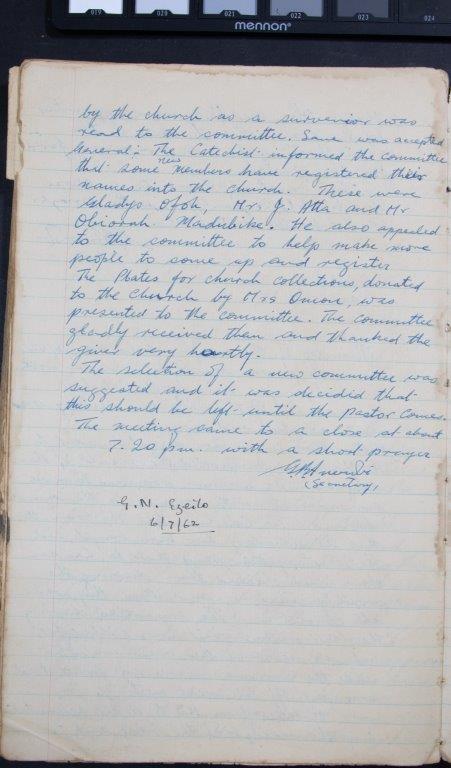 019 020 021 022 023 024
mennon®
by the church as a surverior was
read to the committee. Same was accepted
General: The Catechist informed the committee
that some new members have registered their
names into the church. These were
Gladys Ofoh, Mr. J. Atta and Mr
Obiorah Madubike. He also appealed
to the committee to help make more
people to come up and register
The Plates for church collections, donated
to the Church by Mrs Onuon, was
presented to the committee. The committee
gladly received them and thanked the
giver very heartly.
The selection of a new committee was
suggested and it was decided that
this should be left until the Pastor comes.
The meeting came to a close at about
7.20 p.m. with a short prayer
(Secretary)
G. N. Ezeilo
6/7/62